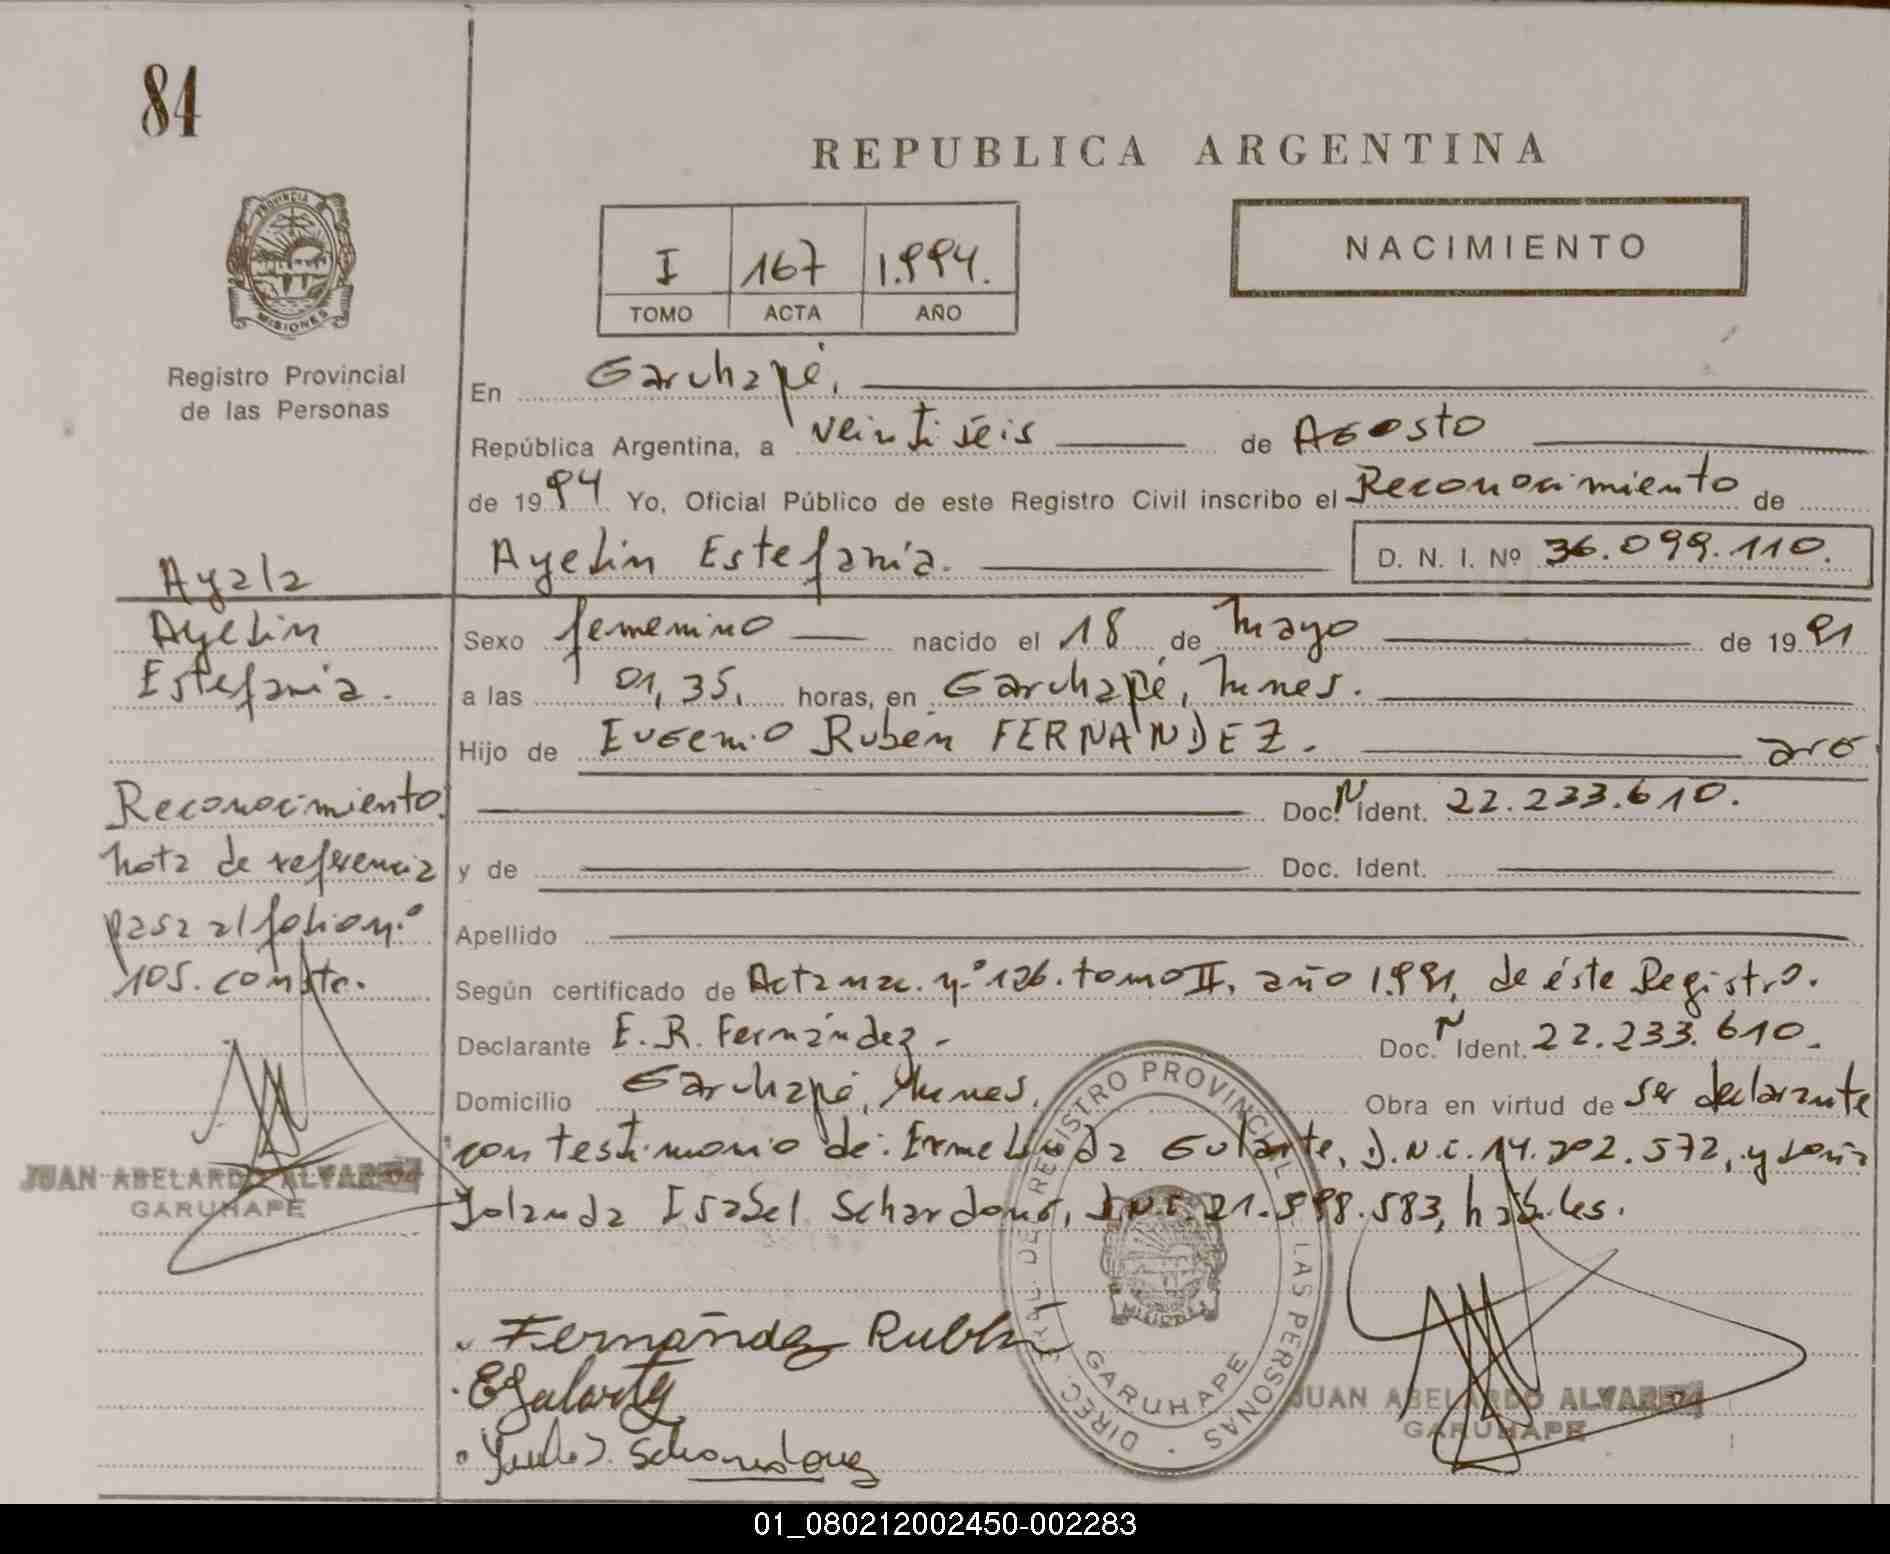 84
REPUBLICA ARGENTINA
PROVINCIA
MISIONES
Registro Provincial
de las Personas
I 167 1.994.
TOMO ACTA AÑO
NACIMIENTO
En Garuhapé,
República Argentina, a veintiseis de Agosto
de 1994 Yo, Oficial Público de este Registro Civil inscribo el Reconocimiento de
Ayelin Estefania. D. N. I. Nº 36.099.110.
Sexo femenino nacido el 18 de Mayo de 1991
a las 01,35, horas, en Garuhapé, Mnes.
Hijo de Eugenio Rubén FERNANDEZ. arg
Doc. N Ident. 22.233.610.
y de Doc. Ident.
Apellido
Según certificado de Acta nac. nº 126. tomo II, año 1.991, de éste Registro.
Declarante E. R. Fernández - Doc. N Ident. 22.233.610.
Domicilio Garuhapé, Mnes. Obra en virtud de ser declarante
con testimonio de: Ermelinda Gularte, D.N.I. 14.202.572, y doña
Jolanda Isabel Schardong, D.N.I. 21.598.583, hábiles.
Ayala
Ayelin
Estefania.
Reconocimiento.
Nota de referencia
pasa al folio nº
105. conste.
JUAN ABELARDO ALVAREZ
GARUHAPE
Fernández Rubén
EGularte
Schardong
DIREC. GRAL. DE REGISTRO PROVINCIAL DE LAS PERSONAS
GARUHAPE
JUAN ABELARDO ALVAREZ
GARUHAPE
01_080212002450-002283